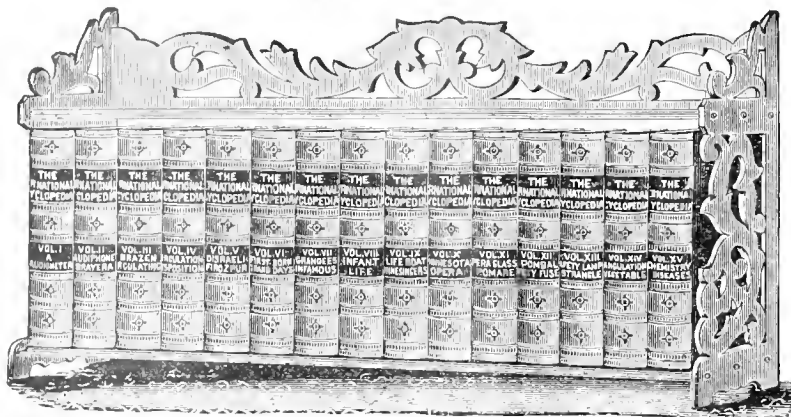 THE
RNATIONAL
YCLOPEDIA
VOL. I
A
UDIOMETER
THE
RNATIONAL
YCLOPEDIA
VOL. II
UDIPHONE
BRAYERA
THE
RNATIONAL
YCLOPEDIA
VOL. III
BRAZEN
RCULATING
THE
RNATIONAL
YCLOPEDIA
VOL. IV
RCULATION
SPOSITION
THE
RNATIONAL
YCLOPEDIA
VOL. V
DISRAELI
FIROZPUR
THE
RNATIONAL
YCLOPEDIA
VOL. VI
DAYS
THE
RNATIONAL
YCLOPEDIA
VOL. VII
GRANGERS
INFAMOUS
THE
RNATIONAL
YCLOPEDIA
VOL. VIII
INFANT
LIFE
THE
RNATIONAL
YCLOPEDIA
VOL. IX
LIFE BOAT
NNESINGERS
THE
RNATIONAL
YCLOPEDIA
VOL. X
NNESOTA
OPERA
THE
RNATIONAL
YCLOPEDIA
VOL. XI
PERA GLASS
POMARE
THE
RNATIONAL
YCLOPEDIA
VOL. XII
POMBAL
FETY FUSE
THE
RNATIONAL
YCLOPEDIA
VOL. XIII
FETY LAMP
STRANGLE
THE
RNATIONAL
YCLOPEDIA
VOL. XIV
RANGULATION
THE
RNATIONAL
YCLOPEDIA
VOL. XV
CHEMISTRY